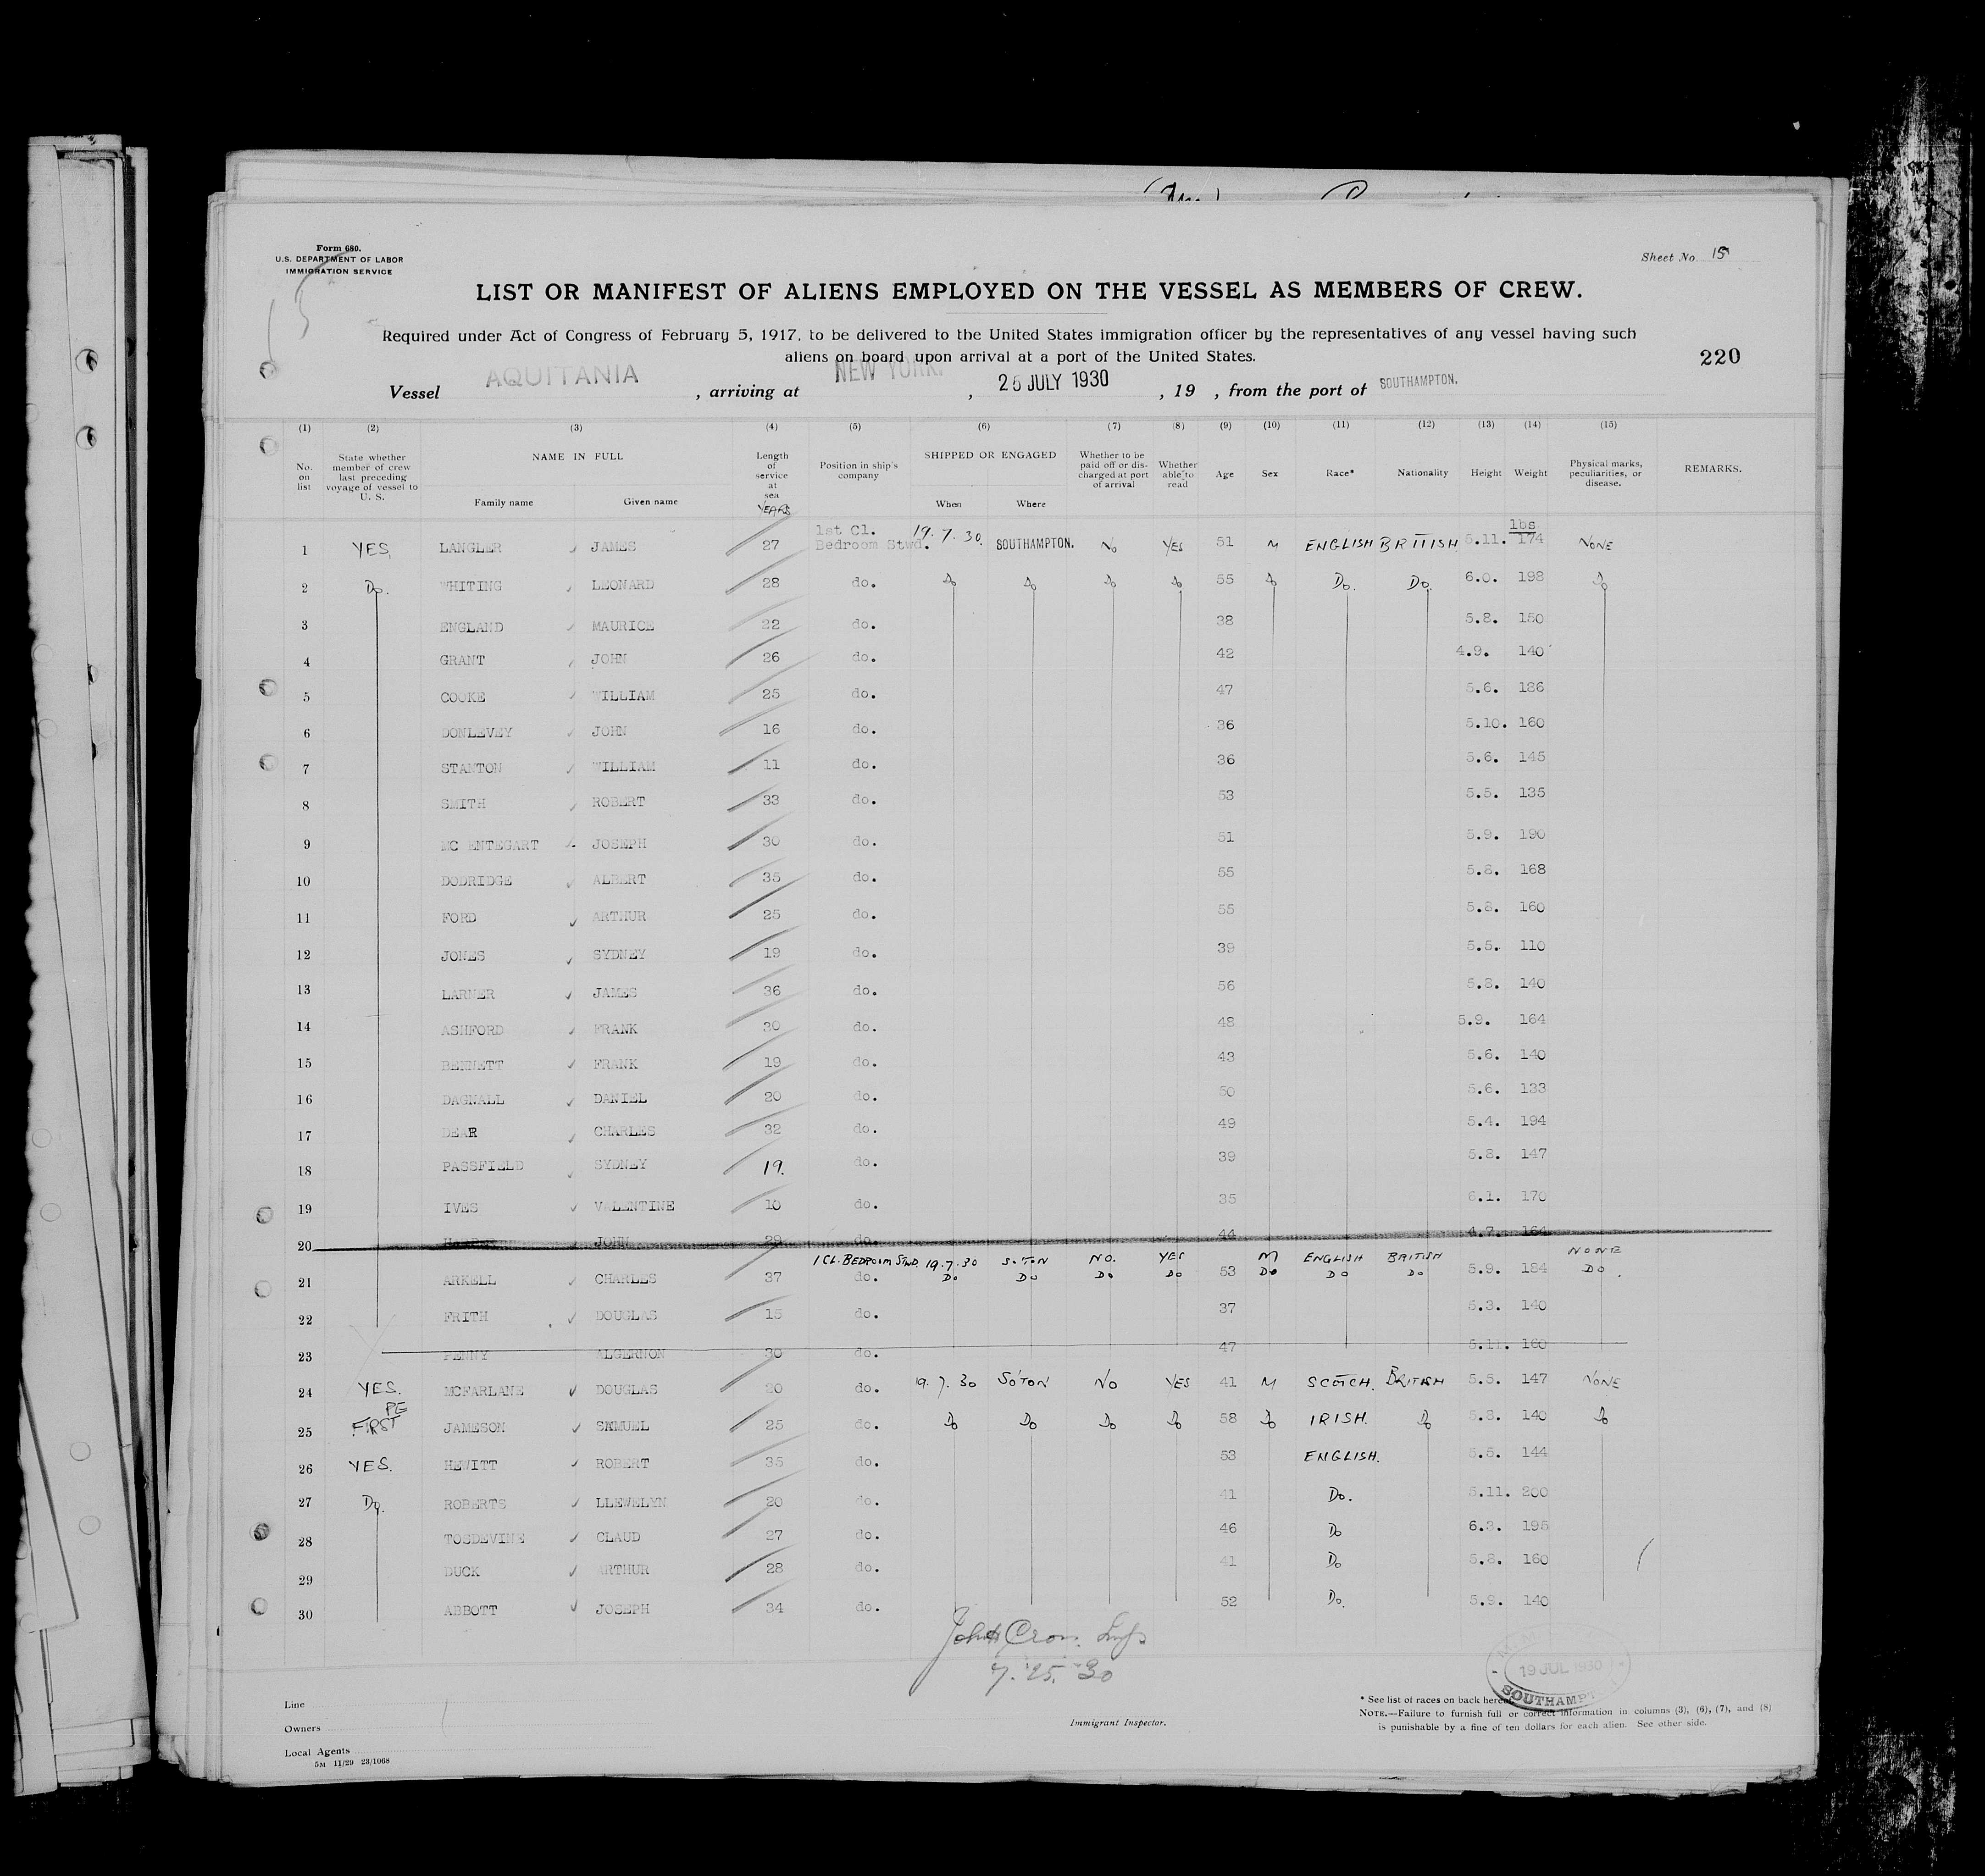 Form 680.
U.S. DEPARTMENT OF LABOR
IMMIGRATION SERVICE
Sheet No. 15
LIST OR MANIFEST OF ALIENS EMPLOYED ON THE VESSEL AS MEMBERS OF CREW.
Required under Act of Congress of February 5, 1917, to be delivered to the United States immigration officer by the representatives of any vessel having such
aliens on board upon arrival at a port of the United States.
220
Vessel AQUITANIA, arriving at NEW YORK, 25 JULY 1930, 19 , from the port of SOUTHAMPTON.
(1) (2) (3) (4) (5) (6) (7) (8) (9) (10) (11) (12) (13) (14) (15)
No. on list State whether member of crew last preceding voyage of vessel to U. S. NAME IN FULL Family name Given name Length of service at sea YEARS Position in ship's company SHIPPED OR ENGAGED When Where Whether to be paid off or discharged at port of arrival Whether able to read Age Sex Race* Nationality Height Weight Physical marks, peculiarities, or disease. REMARKS.
1 YES. LANGLER JAMES 27 1st Cl. Bedroom Stwd. 19.7.30. SOUTHAMPTON. NO YES 51 M ENGLISH BRITISH 5.11. lbs 174 NONE
2 Do. WHITING LEONARD 28 do. Do Do Do Do 55 Do Do. Do. 6.0. 198 Do
3 ENGLAND MAURICE 22 do. 38 5.8. 150
4 GRANT JOHN 26 do. 42 4.9. 140
5 COOKE WILLIAM 25 do. 47 5.6. 186
6 DONLEVEY JOHN 16 do. 36 5.10. 160
7 STANTON WILLIAM 11 do. 36 5.6. 145
8 SMITH ROBERT 33 do. 53 5.5. 135
9 MC ENTEGART JOSEPH 30 do. 51 5.9. 190
10 DODRIDGE ALBERT 35 do. 55 5.8. 168
11 FORD ARTHUR 25 do. 55 5.8. 160
12 JONES SYDNEY 19 do. 39 5.5. 110
13 LARNER JAMES 36 do. 56 5.8. 140
14 ASHFORD FRANK 30 do. 48 5.9. 164
15 BENNETT FRANK 19 do. 43 5.6. 140
16 DAGNALL DANIEL 20 do. 50 5.6. 133
17 DEAR CHARLES 32 do. 49 5.4. 194
18 PASSFIELD SYDNEY 19. do. 39 5.8. 147
19 IVES VALENTINE 10 do. 35 6.1. 170
20 JOHN 29 do. 44 4.7. 164
1 CL. BEDROOM STWD. 19.7.30 SO'TON NO. YES M ENGLISH BRITISH NONE
21 ARKELL CHARLES 37 do. Do Do Do Do 53 Do Do Do 5.9. 184 Do.
22 FRITH DOUGLAS 15 do. 37 5.3. 140
23 PENNY ALGERNON 30 do. 47 5.11. 160
24 YES. MCFARLANE DOUGLAS 20 do. 19.7.30 SO'TON NO YES 41 M SCOTCH. BRITISH 5.5. 147 NONE
25 FIRST JAMESON SAMUEL 25 do. Do Do Do Do 58 Do IRISH. Do 5.8. 140 Do
26 YES. HEWITT ROBERT 35 do. 53 ENGLISH. 5.5. 144
27 Do. ROBERTS LLEWELYN 20 do. 41 Do. 5.11. 200
28 TOSDEVINE CLAUD 27 do. 46 Do 6.3. 195
29 DUCK ARTHUR 28 do. 41 Do 5.8. 160
30 ABBOTT JOSEPH 34 do. 52 Do. 5.9. 140
7.25.30
19 JUL 1930
SOUTHAMPT
Line
Owners
Local Agents
5M 11/29 23/1068
Immigrant Inspector.
* See list of races on back hereof.
NOTE.—Failure to furnish full or correct information in columns (3), (6), (7), and (8)
is punishable by a fine of ten dollars for each alien. See other side.